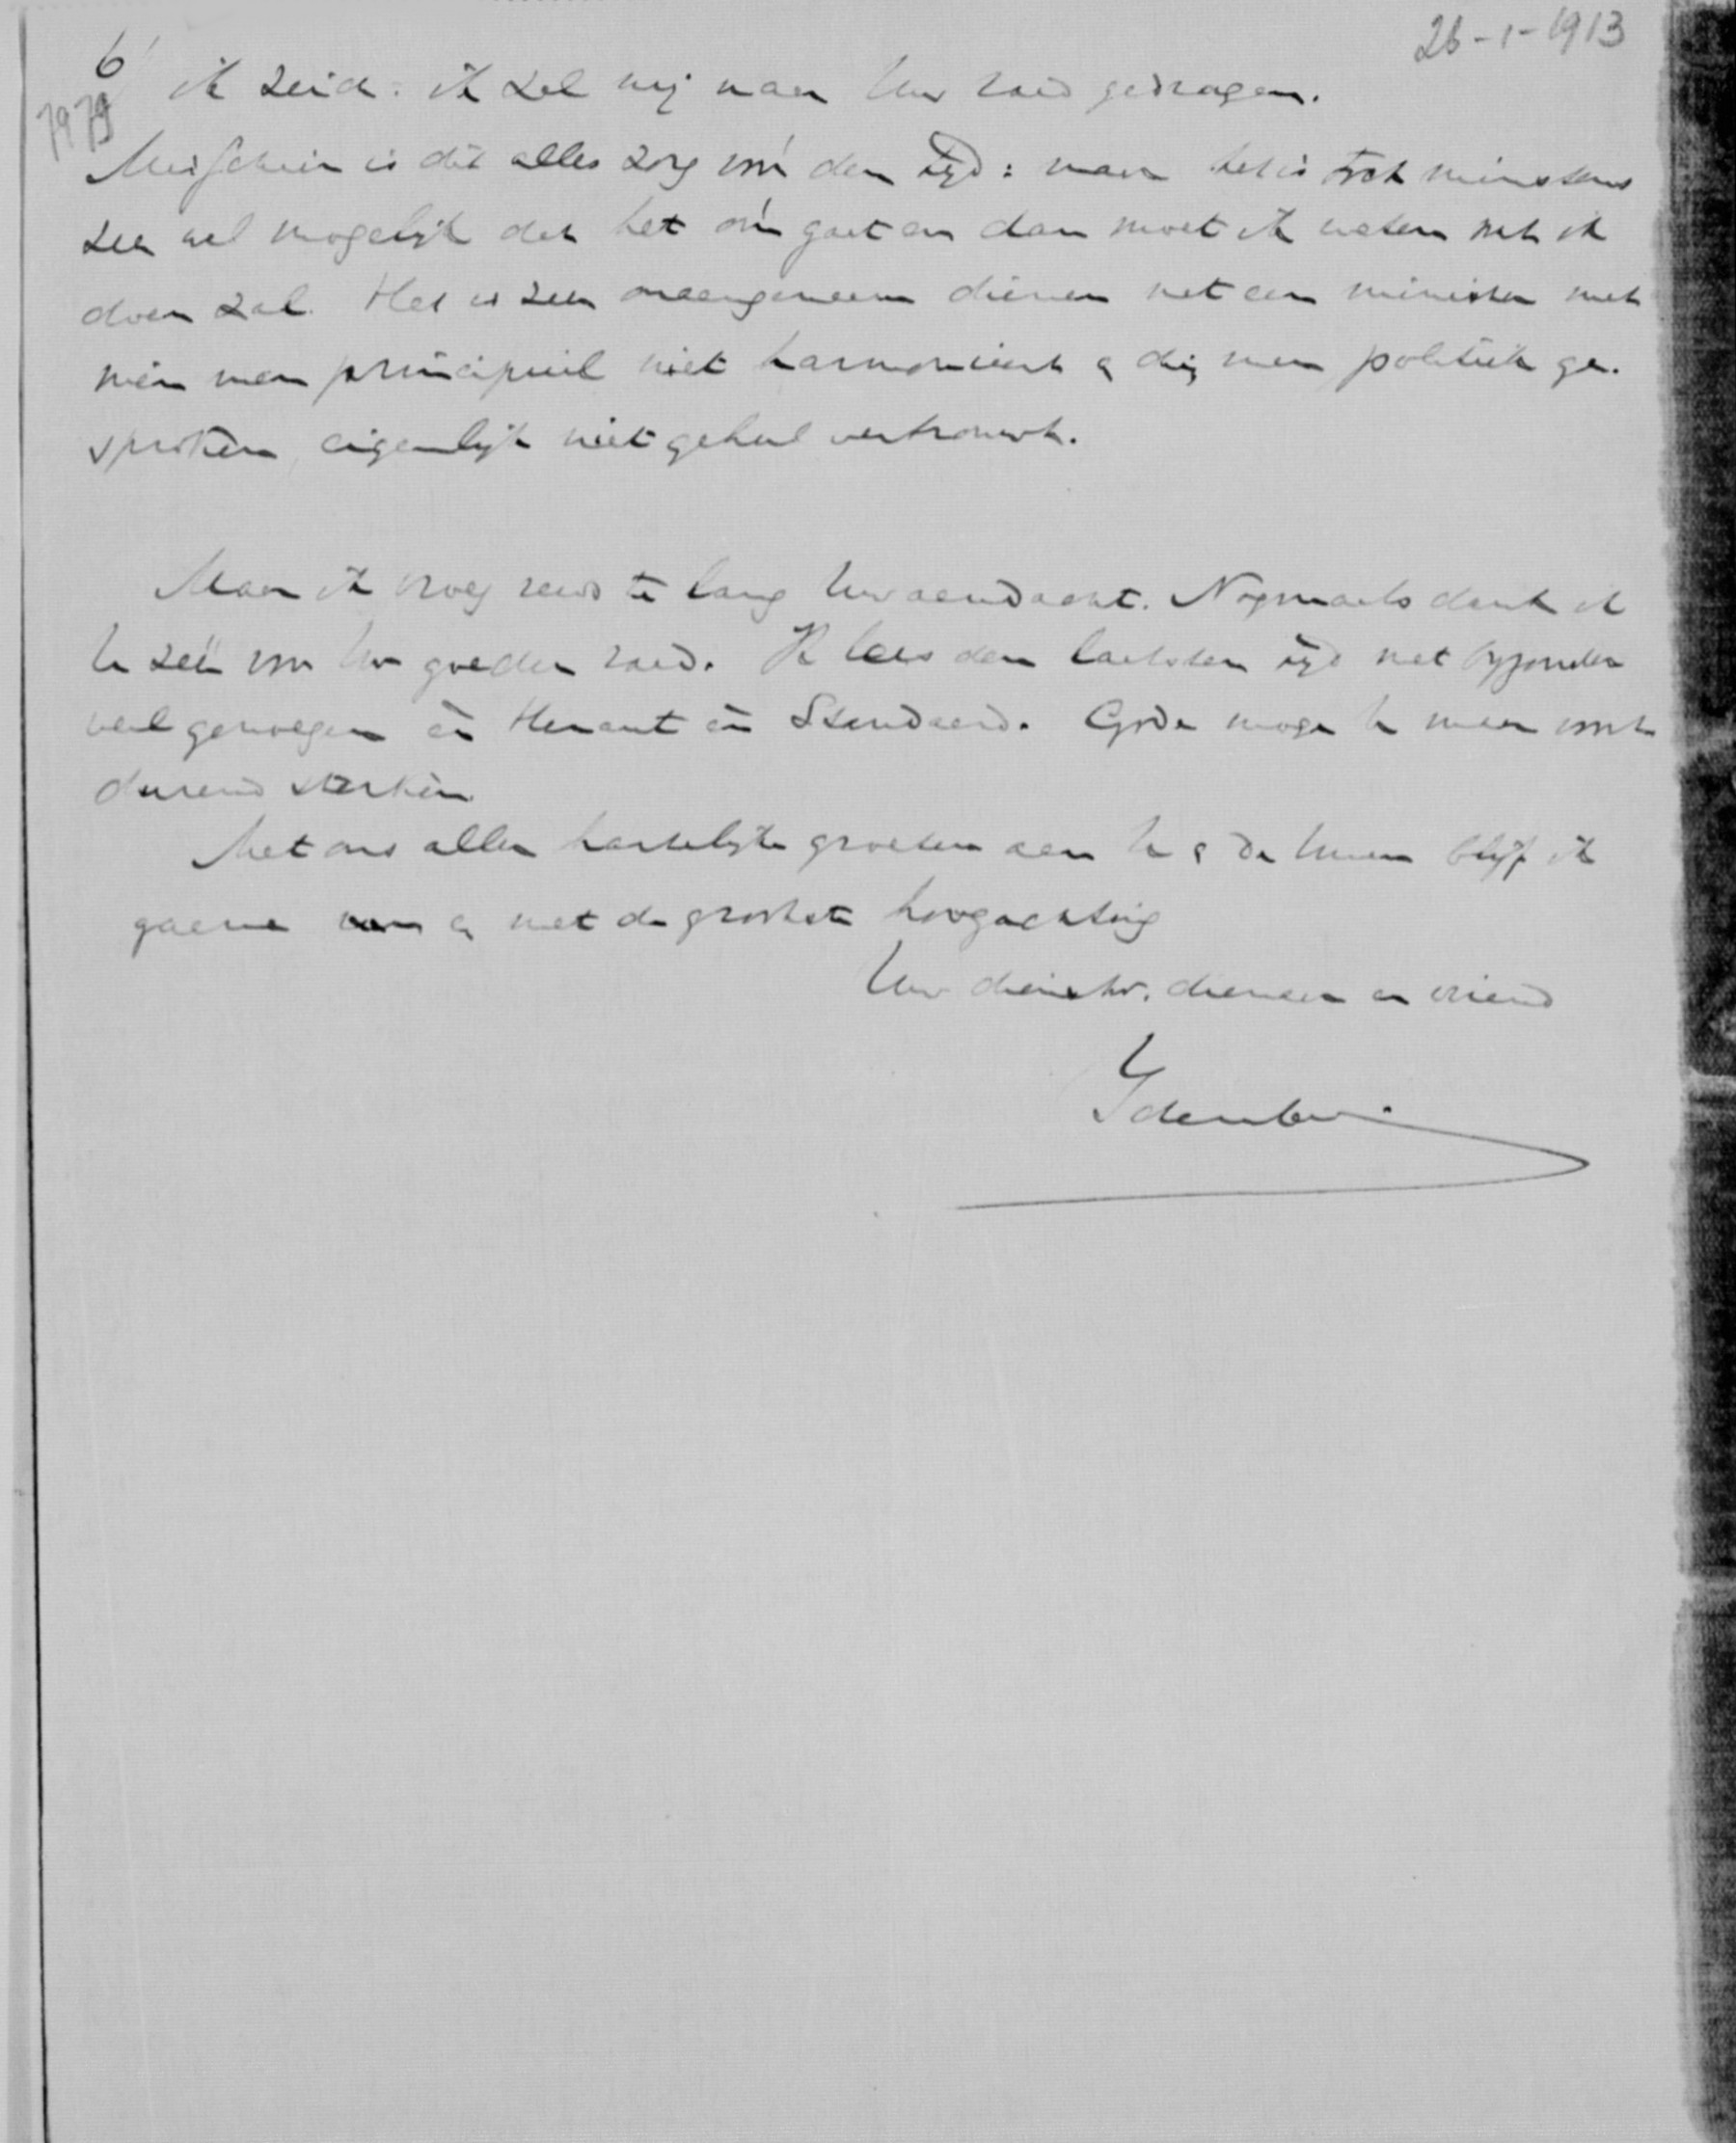 26-1-1913
6
7979
ik zeide: ik zal mij naar Uw raad gedragen.
Misschien is dit alles zorg vóór den tijd: maar het is toch minstens
zeer wel mogelijk dat het zóó gaat en dan moet ik weten wat ik
doen zal. Het is zeer onaangenaam dienen met een minister met
wien men principieel niet harmonieert & dien men, politiek ge-
sproken, eigenlijk niet geheel vertrouwt.
Maar ik vroeg reeds te lang Uw aandacht. Nogmaals dank ik
U zéér voor Uw goeden raad. Ik lees den laatsten tijd met bijzonder
veel genoegen én Heraut én Standaard. Gode moge U meer voort-
durend sterken.
Met ons aller hartelijke groeten aan U & de Uwen blijf ik
gaarne & met de grootste hoogachting
Uw dienstw. dienaar en vriend
Idenburg